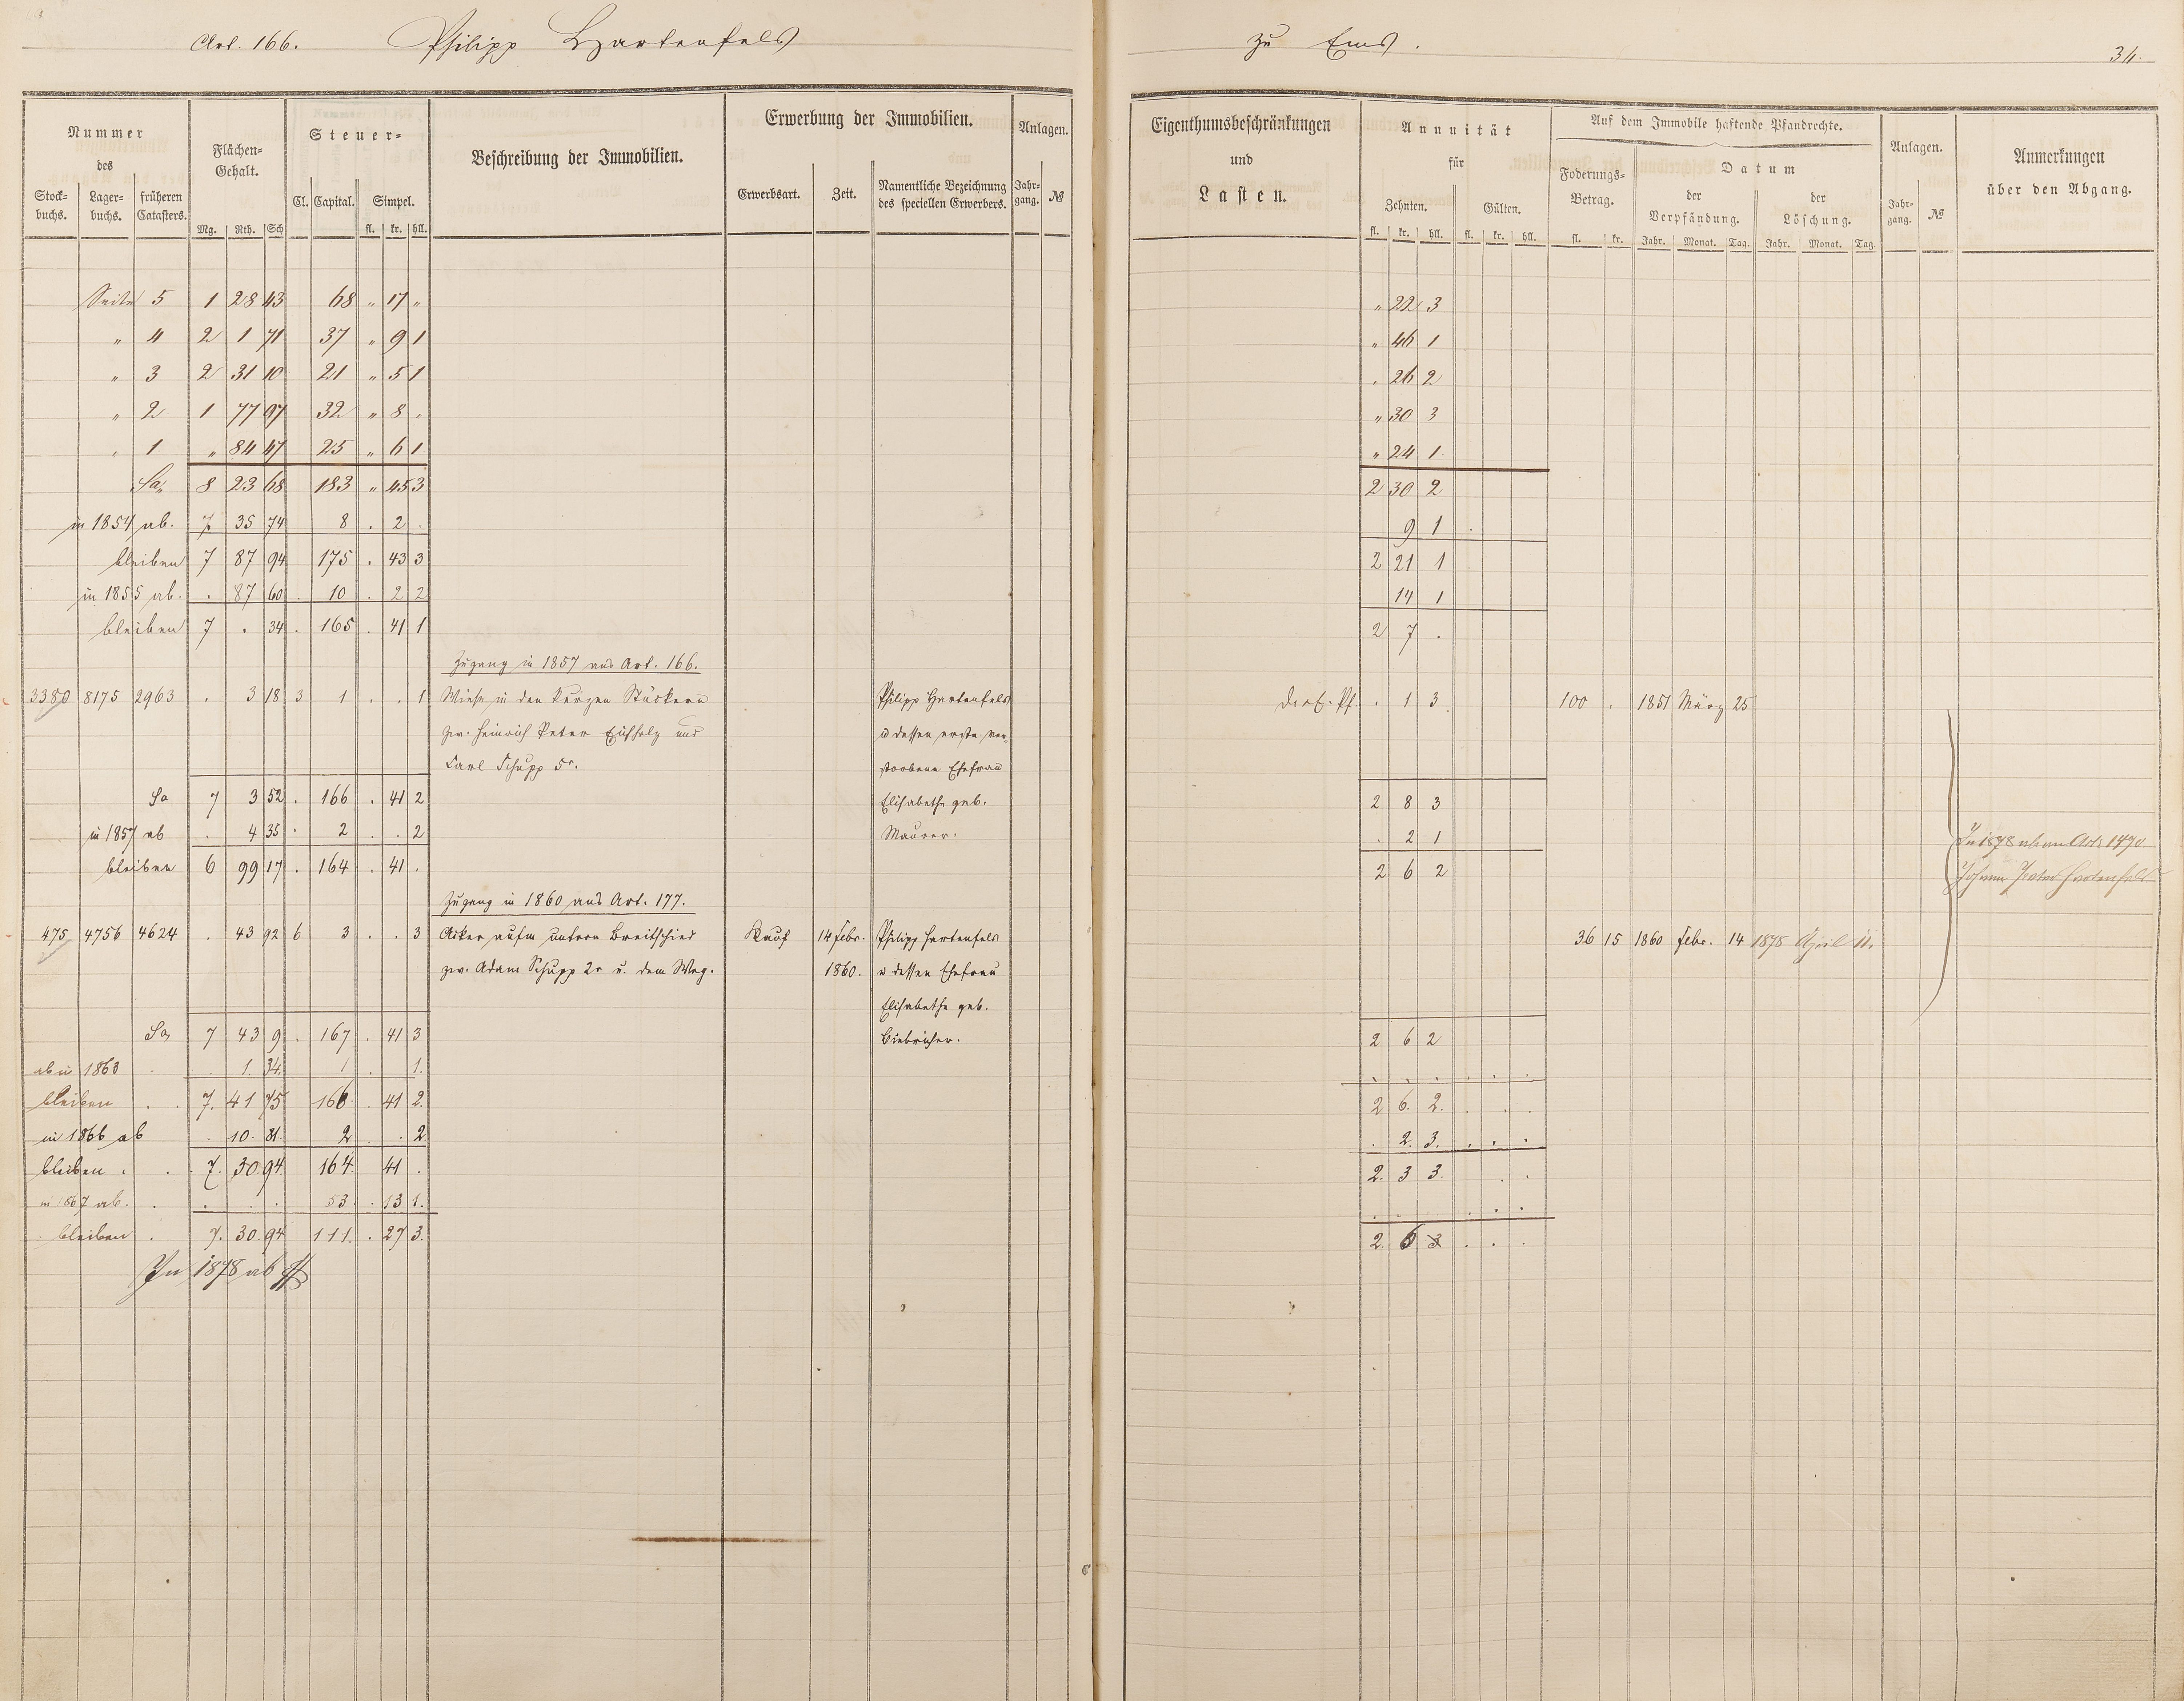 Art. 166. Philipp Hartenfels zu Ems. 34.
Nummer des
Stock-buchs. Lager-buchs. früheren Catasters.
Flächen-Gehalt.
Mg. Rth. Sch
Steuer-
Cl. Capital. Simpel.
fl. kr. hll.
Beschreibung der Immobilien.
Erwerbung der Immobilien.
Erwerbsart. Zeit. Namentliche Bezeichnung des speciellen Erwerbers.
Anlagen.
Jahr-gang. №
Eigenthumsbeschränkungen und Lasten.
Annuität für
Zehnten. Gülten.
fl. kr. hll. fl. kr. hll.
Auf dem Immobile haftende Pfandrechte.
Foderungs-Betrag.
fl. kr.
Datum
der Verpfändung. der Löschung.
Jahr. Monat. Tag. Jahr. Monat. Tag.
Anlagen.
Jahr-gang. №
Anmerkungen über den Abgang.
Seite 5 1 28 43 68 " 17 " " 22 3
" 4 2 1 71 37 " 9 1 " 46 1
" 3 2 31 10 21 " 5 1 . 26 2
" 2 1 77 97 32 " 8 . " 30 3
" 1 " 84 47 25 " 6 1 " 24 1
Sa. 8 23 68 183 " 45 3 2 30 2
in 1854 ab. 35 74 8 . 2 . 9 1
bleiben 7 87 94 175 . 43 3 2 21 1
in 1855 ab. . 87 60 . 10 . 2 2 14 1
bleiben 7 . 34 . 165 . 41 1 2 7 .
Zugang in 1857 aus Art. 166.
3380 8175 2963 . 3 18 3 1 . . 1 Wiese in den kurzen Stückern Philipp Hartenfels . 1 3 100 . 1851 März 25
zw. Heinrich Peter Eichholz und u dessen erste ver-
Carl Schupp 5r. storbene Ehefrau
Sa 7 3 52 . 166 . 41 2 Elisabethe geb. 2 8 3
in 1857 ab . 4 35 . 2 . . 2 Maurer. . 2 1 In 1878 ab an Art. 1470
bleiben 6 99 17 . 164 . 41 . 2 6 2 Johann Peter Hartenfels
Zugang in 1860 aus Art. 177.
475 4756 4624 . 43 92 6 3 . . 3 Acker aufm untern Breitschied Kauf 14 Febr. Philipp Hartenfels 36 15 1860 Febr. 14 1878 April 11.
zw. Adam Schupp 2r u. dem Weg. 1860. u dessen Ehefrau
Elisabethe geb.
Sa 7 43 9 . 167 . 41 3 Biebricher. 2 6 2
ab in 1863 . . 1. 34. 1 . 1.
bleiben . . 7. 41 75 166 . 41 2. 2 6. 2.
in 1866 ab . 10. 81. 2 . . 2 . 2. 3.
bleiben . . 7. 30. 94. 164. 41 . 2. 3 3.
in 1867 ab. . . . . 53. . 13 1.
bleiben . 7. 30. 94 111. . 27 3. 2. 6 3
In 1878 ab